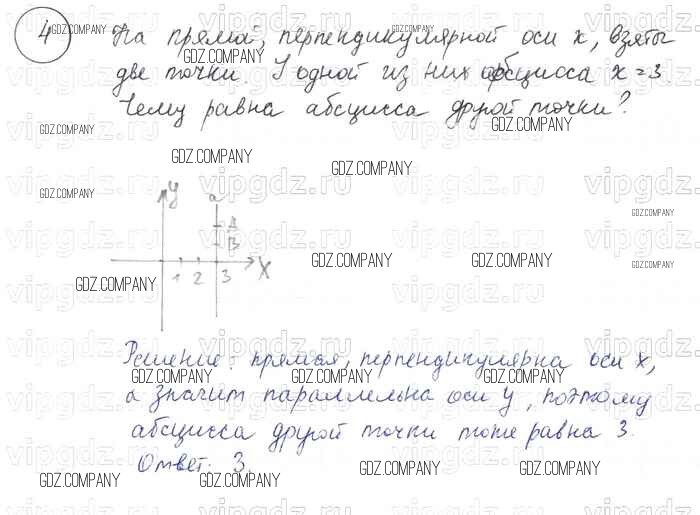 4 На прямой, перпендикулярной оси x, взяты
две точки. У одной из них абсцисса x = 3
Чему равна абсцисса другой точки?
y a
A
B
1 2 3 x
Решение: прямая, перпендикулярна оси x,
а значит параллельна оси y, поэтому
абсцисса другой точки тоже равна 3.
Ответ: 3.
GDZ.COMPANY
vipgdz.ru